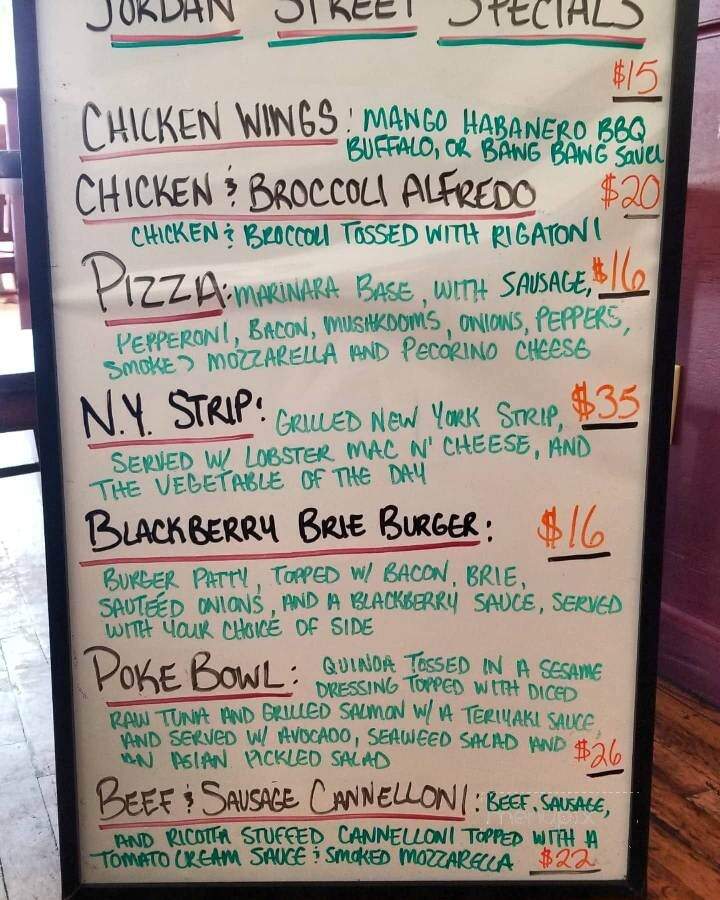 JORDAN STREET SPECIALS
$15
CHICKEN WINGS: MANGO HABANERO BBQ
BUFFALO, OR BANG BANG SAUCE
CHICKEN & BROCCOLI ALFREDO $20
CHICKEN & BROCCOLI TOSSED WITH RIGATONI
PIZZA: MARINARA BASE, WITH SAUSAGE, $16
PEPPERONI, BACON, MUSHROOMS, ONIONS, PEPPERS,
SMOKED MOZZARELLA AND PECORINO CHEESE
N.Y. STRIP: GRILLED NEW YORK STRIP, $35
SERVED W/ LOBSTER MAC N' CHEESE, AND
THE VEGETABLE OF THE DAY
BLACKBERRY BRIE BURGER: $16
BURGER PATTY, TOPPED W/ BACON, BRIE,
SAUTÉED ONIONS, AND A BLACKBERRY SAUCE, SERVED
WITH YOUR CHOICE OF SIDE
POKE BOWL: QUINOA TOSSED IN A SESAME
DRESSING TOPPED WITH DICED
RAW TUNA AND GRILLED SALMON W/ A TERIYAKI SAUCE,
AND SERVED W/ AVOCADO, SEAWEED SALAD AND
AN ASIAN PICKLED SALAD $26
BEEF & SAUSAGE CANNELLONI: BEEF, SAUSAGE,
AND RICOTTA STUFFED CANNELLONI TOPPED WITH A
TOMATO CREAM SAUCE & SMOKED MOZZARELLA $22
menupix